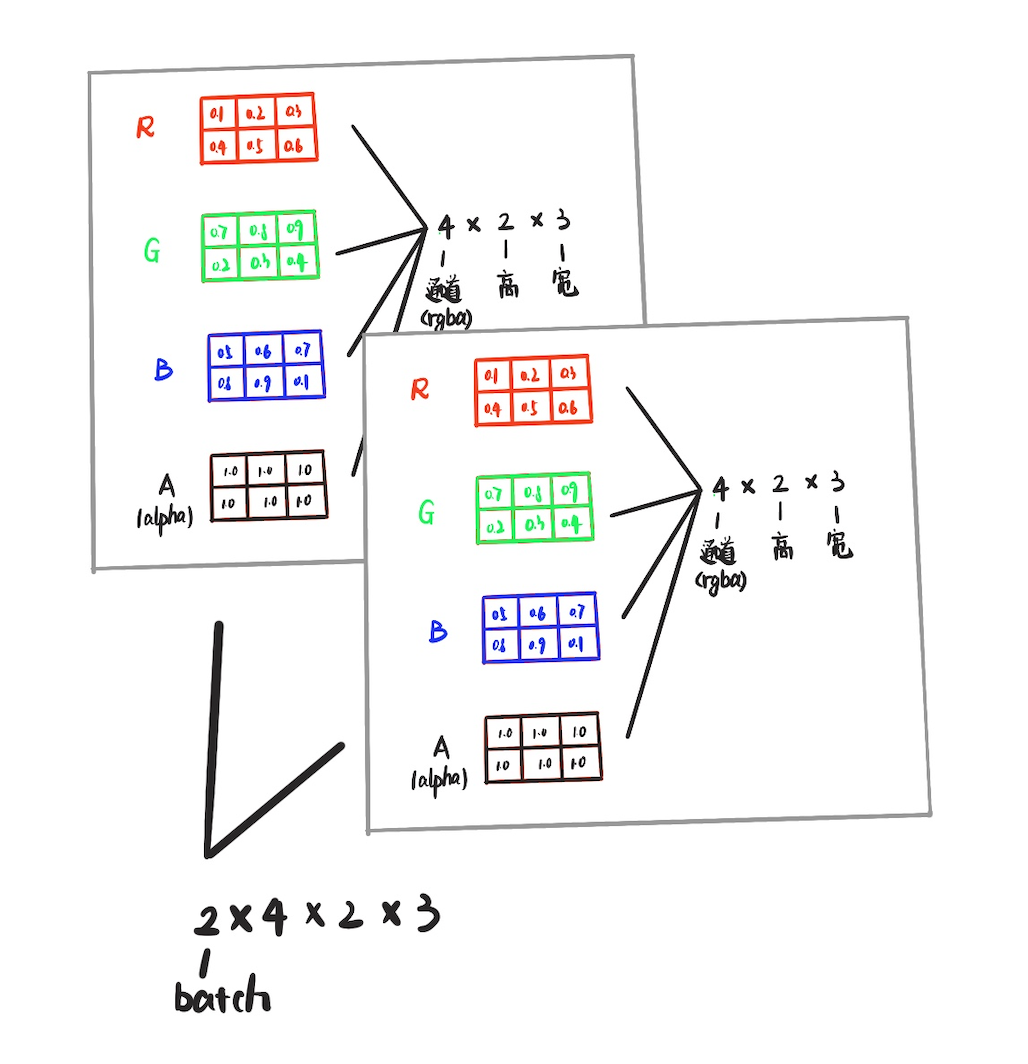 R
0.1 0.2 0.3
0.4 0.5 0.6
G
0.7 0.8 0.9
0.2 0.3 0.4
B
0.5 0.6 0.7
0.8 0.9 0.1
A
(alpha)
1.0 1.0 1.0
1.0 1.0 1.0
4 × 2 × 3
通道 高 宽
(rgba)
R
0.1 0.2 0.3
0.4 0.5 0.6
G
0.7 0.8 0.9
0.2 0.3 0.4
B
0.5 0.6 0.7
0.8 0.9 0.1
A
(alpha)
1.0 1.0 1.0
1.0 1.0 1.0
4 × 2 × 3
通道 高 宽
(rgba)
2 × 4 × 2 × 3
batch